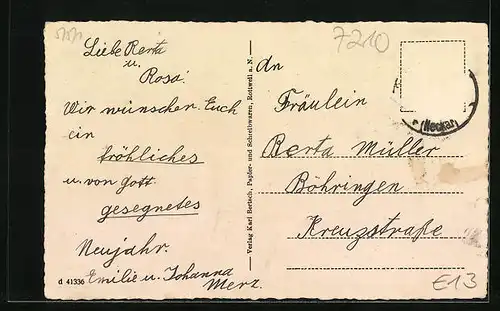 7210
Liebe Berta
u.
Rosa.
Wir wünschen Euch
ein
fröhliches
u. von Gott
gesegnetes
Neujahr.
Emilie u. Johanna
Merz
d 41336
Verlag Karl Bertsch, Papier- und Schreibwaren, Rottweil a. N.
An
Fräulein
Berta Müller
Böhringen
Kreuzstraße
(Neckar)
E13